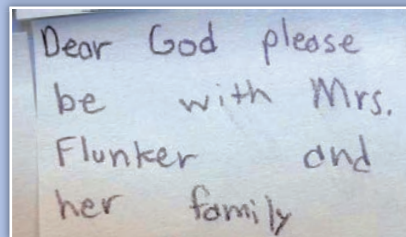 Dear God please
be with Mrs.
Flunker and
her family